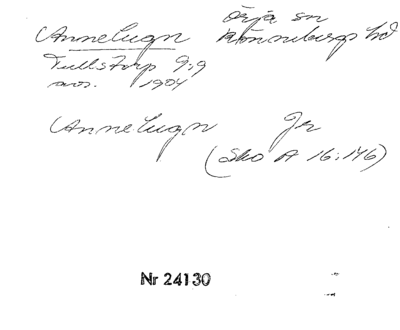 Örja sn
Annelugn Rönnebergs hd
Tullstorp 9:9
avs. 1904
Annelugn Gr
(Sko A 16:146)
Nr 24130